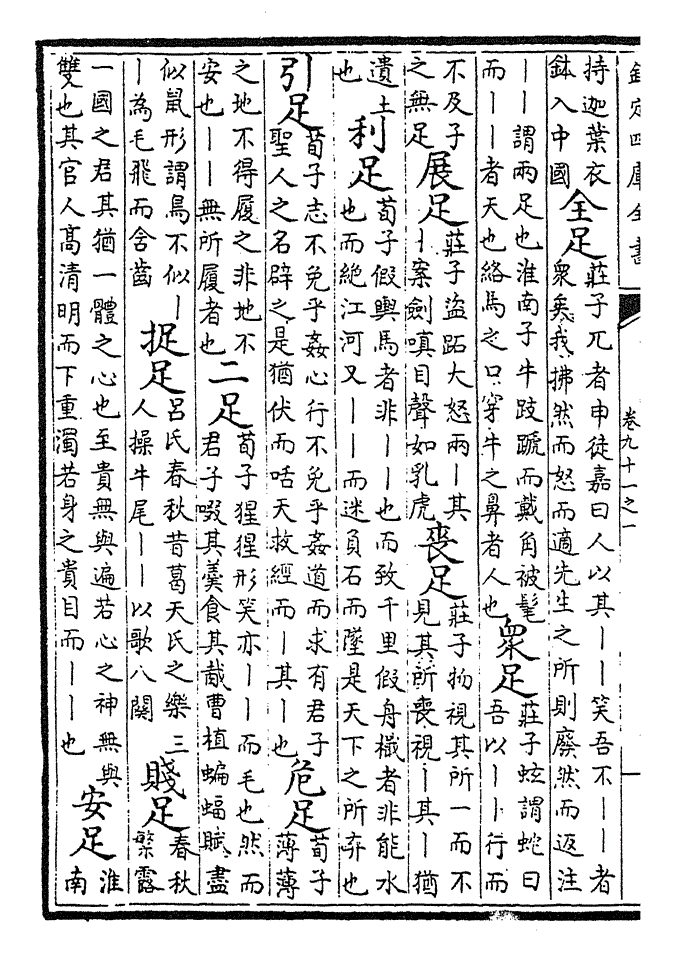 欽定四庫全書 卷九十一之一
持迦葉衣鉢入中國 全足 莊子兀者申徒嘉曰人以其丨丨笑吾不丨丨者衆矣我拂然而怒而適先生之所則廢然而返注
丨丨謂兩足也淮南子牛跂蹏而戴角被髦而丨丨者天也絡馬之口穿牛之鼻者人也 衆足 莊子蚿謂蛇曰吾以丨丨行而
不及子之無足 展足 莊子盜跖大怒兩丨其丨案劍嗔目聲如乳虎 喪足 莊子物視其所一而不見其所喪視丨其丨猶
遺土也 利足 荀子假輿馬者非丨丨也而致千里假舟檝者非能水也而絶江河又丨丨而迷負石而墜是天下之所弃也
引足 荀子志不免乎姦心行不免乎姦道而求有君子聖人之名辟之是猶伏而咶天救經而丨其丨也 危足 荀子薄薄
之地不得履之非地不安也丨丨無所履者也 二足 荀子猩猩形笑亦丨丨而毛也然而君子啜其羮食其胾曹植蝙蝠賦盡
似鼠形謂鳥不似丨丨為毛飛而含齒 捉足 呂氏春秋昔葛天氏之樂三人操牛尾丨丨以歌八闋 賤足 春秋繁露
一國之君其猶一體之心也至貴無與遍若心之神無與雙也其官人高清明而下重濁若身之貴目而丨丨也 安足 淮南